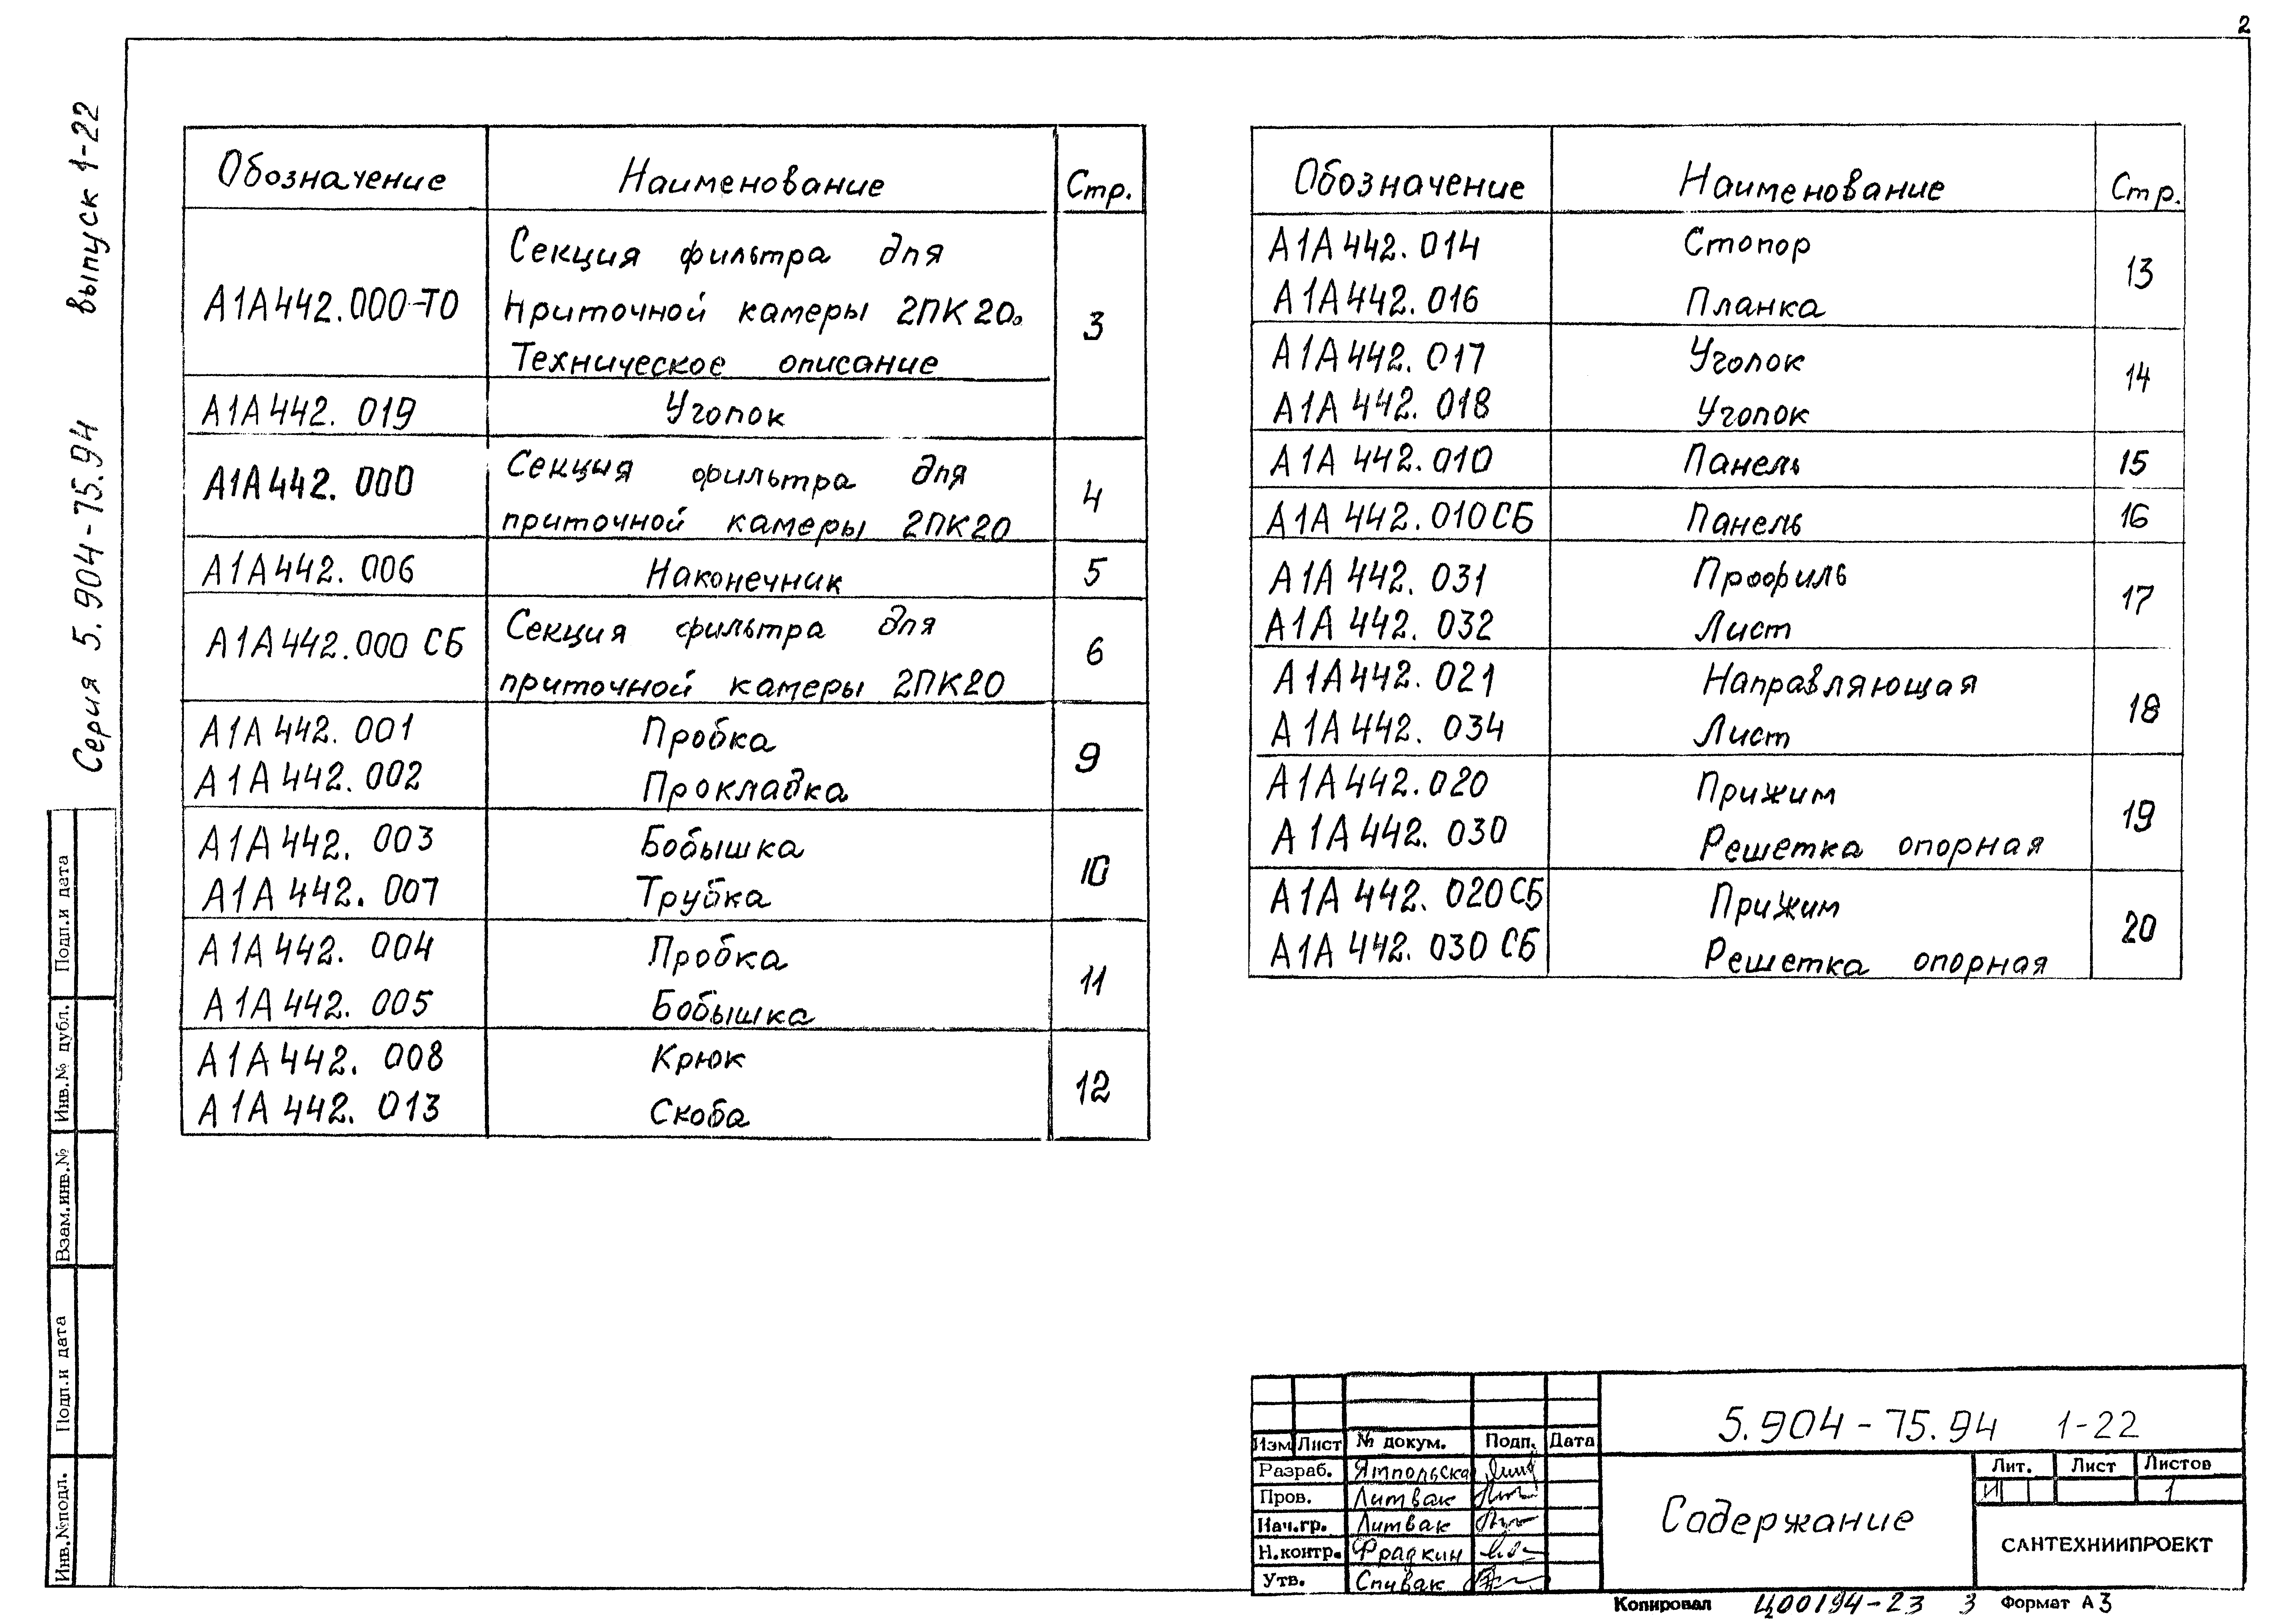 2
Серия 5.904-75.94 выпуск 1-22
Обозначение Наименование Стр.
А1А442.000-ТО Секция фильтра для
приточной камеры 2ПК20.
Техническое описание 3
А1А442.019 Уголок
А1А442.000 Секция фильтра для
приточной камеры 2ПК20 4
А1А442.006 Наконечник 5
А1А442.000 СБ Секция фильтра для
приточной камеры 2ПК20 6
А1А442.001 Пробка 9
А1А442.002 Прокладка
А1А442.003 Бобышка 10
А1А442.007 Трубка
А1А442.004 Пробка 11
А1А442.005 Бобышка
А1А442.008 Крюк 12
А1А442.013 Скоба
Обозначение Наименование Стр.
А1А442.014 Стопор 13
А1А442.016 Планка
А1А442.017 Уголок 14
А1А442.018 Уголок
А1А442.010 Панель 15
А1А442.010СБ Панель 16
А1А442.031 Профиль 17
А1А442.032 Лист
А1А442.021 Направляющая 18
А1А442.034 Лист
А1А442.020 Прижим 19
А1А442.030 Решетка опорная
А1А442.020СБ Прижим 20
А1А442.030 СБ Решетка опорная
Подп.и дата
Инв.№ дубл.
Взам.инв.№
Подп.и дата
Инв.№подл.
5.904-75.94 1-22
Изм Лист № докум. Подп. Дата
Разраб. Ямпольска
Пров. Литвак
Нач.гр. Литвак
Н.контр. Фрадкин
Утв. Спивак
Содержание
Лит. Лист Листов
И 1
САНТЕХНИИПРОЕКТ
Копировал Ц00194-23 3 Формат А3